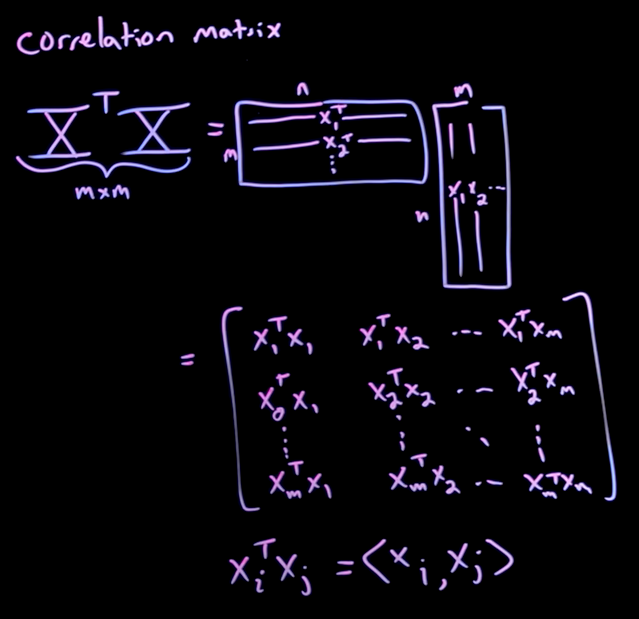 correlation matrix
X^T X = m [ n — x₁^T — — x₂^T — ⋮ ] n [ m | | x₁ x₂ ⋯ | | ]
m×m
= [ x₁^T x₁ x₁^T x₂ ⋯ x₁^T xₘ
x₀^T x₁ x₂^T x₂ ⋯ x₂^T xₘ
⋮ ⋮ ⋱ ⋮
xₘ^T x₁ xₘ^T x₂ ⋯ xₘ^T xₘ ]
xᵢ^T xⱼ = ⟨xᵢ, xⱼ⟩